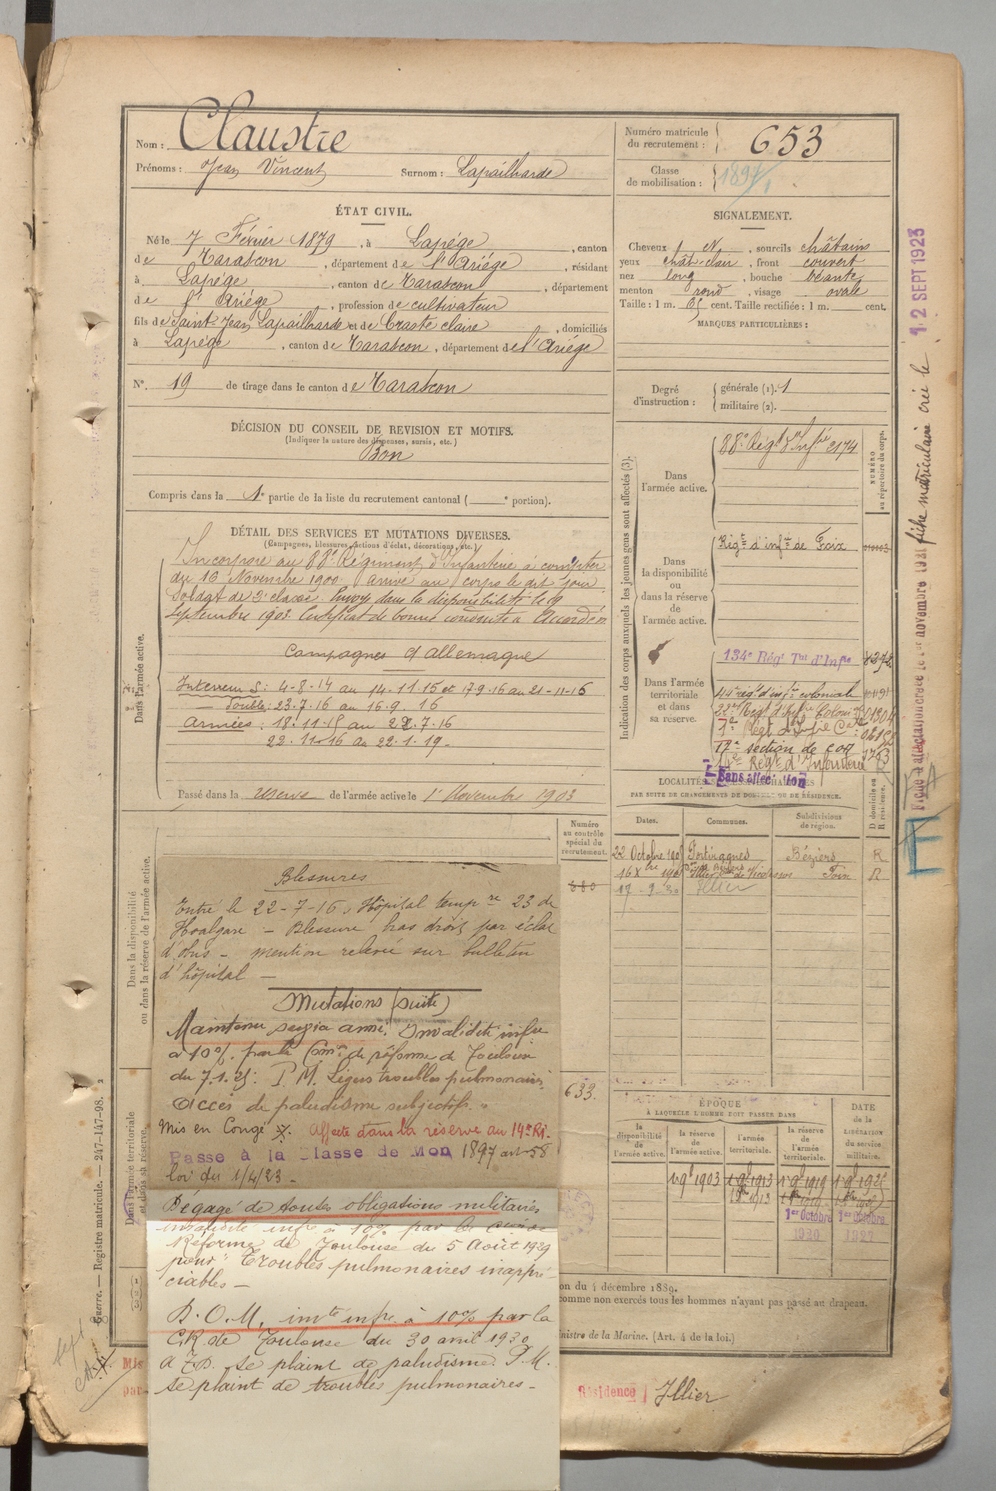 Nom : Claustre
Prénoms : Jean Vincent Surnom : Lapailharde
Numéro matricule
du recrutement : 653
Classe
de mobilisation : 1897
ÉTAT CIVIL.
Né le 7 Février 1879, à Lapège, canton
de Tarascon, département de l'Ariège, résidant
à Lapège, canton de Tarascon, département
de l'Ariège, profession de cultivateur
fils de Saint Jean Lapailharde et de Traste claire, domiciliés
à Lapège, canton de Tarascon, département de l'Ariège
N°. 19 de tirage dans le canton de Tarascon
SIGNALEMENT.
Cheveux N, sourcils châtains
yeux chât-clair, front couvert
nez long, bouche béante
menton rond, visage ovale
Taille : 1 m. 65 cent. Taille rectifiée : 1 m. cent.
MARQUES PARTICULIÈRES :
Degré
d'instruction :
générale (1). 1
militaire (2).
DÉCISION DU CONSEIL DE REVISION ET MOTIFS.
(Indiquer la nature des dispenses, sursis, etc.)
Bon
Compris dans la 1e partie de la liste du recrutement cantonal ( e portion).
DÉTAIL DES SERVICES ET MUTATIONS DIVERSES.
(Campagnes, blessures, actions d'éclat, décorations, etc.)
Dans l'armée active.
Incorporé au 88e Régiment d'Infanterie à compter
du 16 Novembre 1900 arrivé au corps le dit jour
Soldat de 2e classe. Envoyé dans la disponibilité le 19
Septembre 1903. Certificat de bonne conduite "Accordé"
Campagnes d'allemagne
Interieur S : 4-8-14 au 14-11-15 et 17-9-16 au 21-11-16
— double : 23.7.16 au 16.9.16
Armées : 18.11.15 au 22.7.16
22.11.16 au 22.1.19.
Passé dans la réserve de l'armée active le 1er Novembre 1903
Indication des corps auxquels les jeunes gens sont affectés (3).
NUMÉRO
au répertoire du corps.
Dans
l'armée active.
88e Régt d'Infie 2174
Dans
la disponibilité
ou dans
la réserve
de
l'armée active.
Régt d'infie de Foix
Dans l'armée
territoriale
et dans
sa réserve.
134e Régt Tal d'Infie
44e régt d'infie coloniale
22e Régt d'Infie Coloniale
7e Régt d'Infie Cale
17e section de COA
14e Régt d'Infanterie
Sans affectation
LOCALITÉS
PAR SUITE DE CHANGEMENTS DE DOMICILE OU DE RÉSIDENCE.
Dates. Communes. Subdivisions
de région.
D domicile ou
R résidence.
22 Octobre 190 Portiragnes Béziers R
16 Xbre 190 Illier Foix R
17-9-30 Illier
Numéro
au contrôle
spécial du
recrutement.
680
633.
Dans la disponibilité
ou dans la réserve de l'armée active.
Blessures
Entré le 22-7-16, Hôpital tempre 23 de
— Blessure bras droit par éclat
d'obus — mention relevée sur bulletin
d'hôpital —
Mutations (suite)
Maintenu service armé. Invalidité infre
à 10%. par la Comon de réforme de Toulouse
du 7.1.25: P.M. Légers troubles pulmonaires,
accès de paludisme subjectifs.
Mis en Congé Affecté dans la réserve au 14e RI.
Passé à la Classe de Mob 1897 art-58
loi du 1/4/23 —
Dégagé de toutes obligations militaires
invalidité infre à 10% par la
Réforme de Toulouse du 5 Août 1929
pour "troubles pulmonaires inappré-
ciables —
P.O.M. invté infre à 10% par la
C.R. de Toulouse du 30 avril 1930
Se plaint de paludisme. P.M.
se plaint de troubles pulmonaires —
Dans l'armée territoriale
et dans sa réserve.
ÉPOQUE
À LAQUELLE L'HOMME DOIT PASSER DANS
DATE
de la
LIBÉRATION
du service
militaire.
la
disponibilité
de
l'armée active.
la réserve
de
l'armée active.
l'armée
territoriale.
la réserve
de
l'armée
territoriale.
1 9b 1903 1 9b 1913 1 9b 1919
1er Octobre
1920
1er Octobre
1927
on du 4 décembre 1889.
comme non exercés tous les hommes n'ayant pas passé au drapeau.
nistre de la Marine. (Art. 4 de la loi.)
Résidence Illier
Guerre. — Registre matricule. — 247-147-98.
fiche matriculaire créée le 12 SEPT 1923